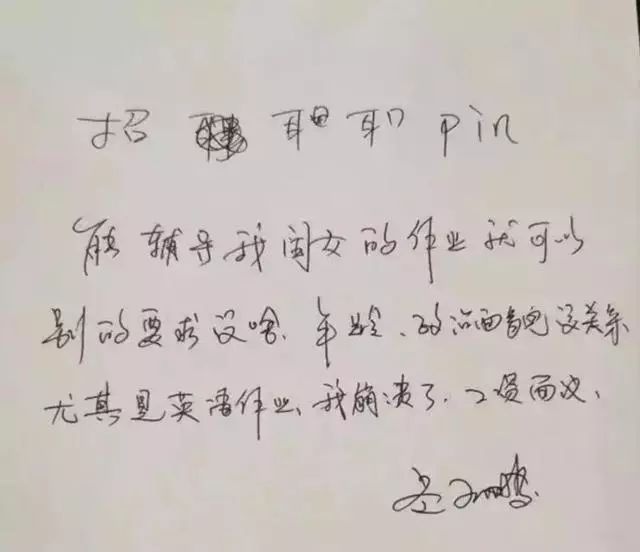 招 pin
能辅导我闺女的作业就可以
别的要求没啥、年龄、政治面貌没关系
尤其是英语作业、我崩溃了、工资面议、